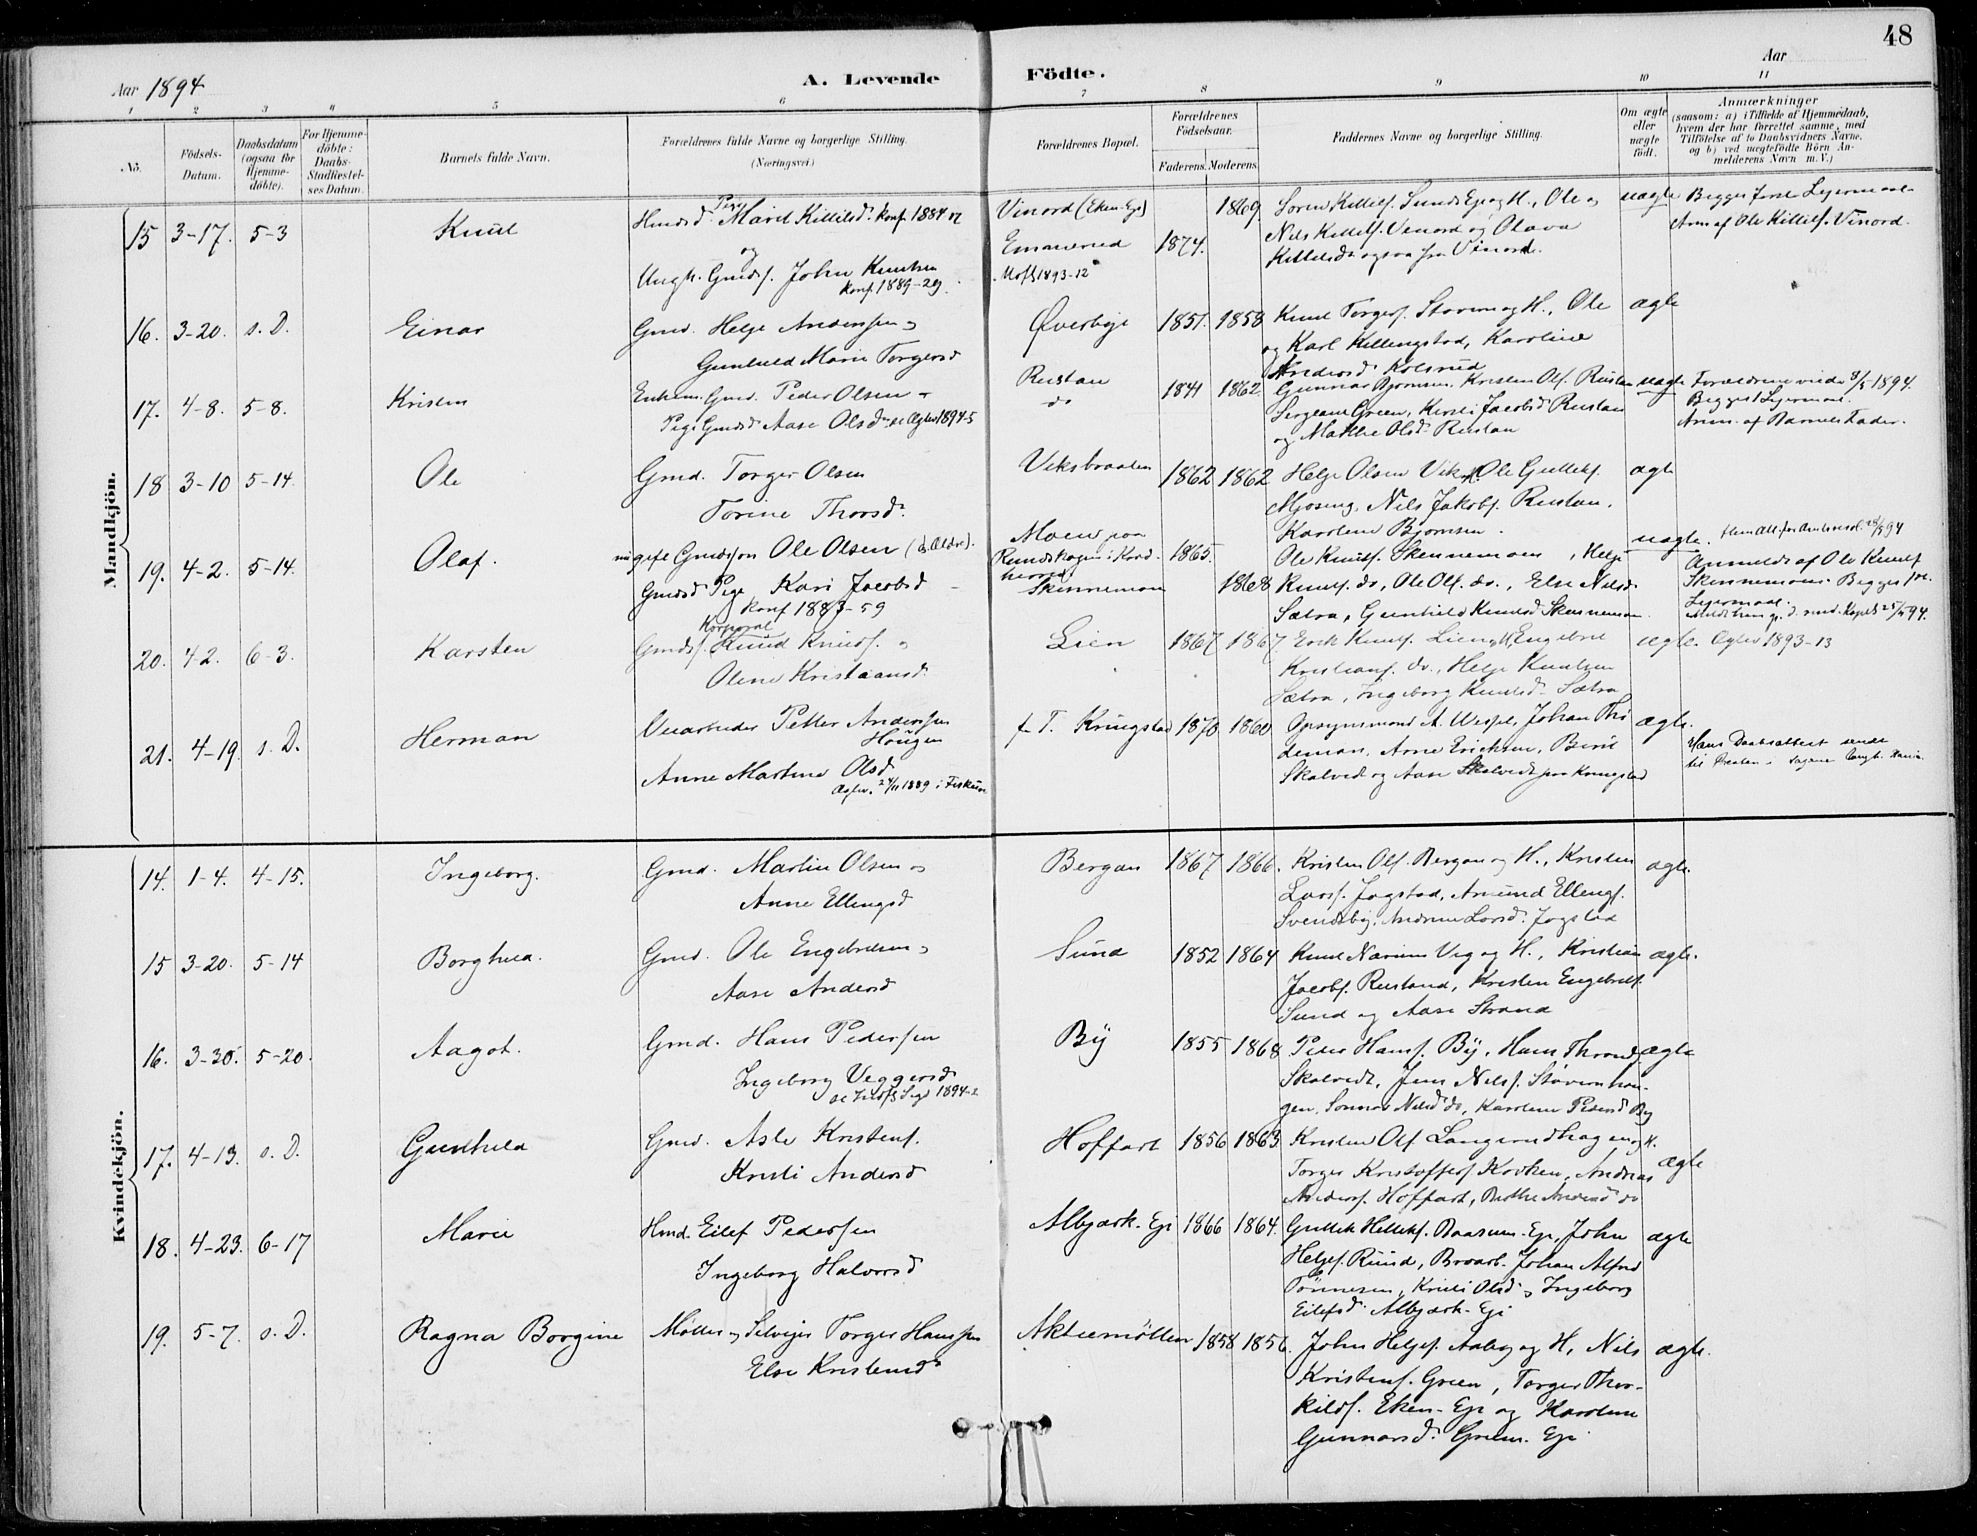 48
Aar 1894
A. Levende
Födte.
Aar
1 2 3 4 5 6 7 8 9 10 11
No.
Födsels-Datum.
Daabsdatum (ogsaa for Hjemmedöbte).
For Hjemmedöbte: Daabs-Stadfæstelses Datum.
Barnets fulde Navn.
Forældrenes fulde Navne og borgerlige Stilling. (Næringsvei.)
Forældrenes Bopæl.
Forældrenes Födselsaar.
Faderens. Moderens.
Faddernes Navne og borgerlige Stilling.
Om ægte eller uægte födt.
Anmærkninger
(saasom: a) i Tilfælde af Hjemmedaab, hvem der har forrettet samme, med Tilföielse af to Daabsvidners Navne, og b) ved uægtefödte Börn Anmelderens Navn m. V.)
Mandkjön.
15 3-17. 5-3 Knut
Pige Marit Killilsd. konf. 1884
og
Ungk. Gmds. John Knutsen
konf. 1889-29
Vinord (Eken-Eje)
1869
1874.
1893-12
Søren Killilsf. Sund Eje og H., Ole og
Nils Killilsf. Vinord og Olava
Killilsd. ogsaa fra Vinord.
uægte
Begges første Leiermaal
Anm. af Ole Killilsf. Vinord.
16. 3-20. s. D. Einar
Gmd. Helge Anderssen og
Gunhild Marie Torgersd.
Øverbye 1851. 1858
Knut Torgersf. Støveren og H., Ole
og Karl Killingstad, Karoline
Andersd. Kolsrud
ægte
17. 4-8. 5-8. Kristen
Enkem. Gmd. Peder Olsen og
Pige Gmdsd. Aase Olsd. se Ægtev. 1894-5
Rustan
do
1841 1862
Gunnar Bjørnsen, Kristen Olsf. Rustan
Sergeant Green, Kirsti Jacobsd. Rustan
og Mathie Olsd. Rustan
uægte
Forældrene viede 8/5 1894.
Begges 1 Leiermaal.
Anm. af Barnets Fader.
18 3-10 5-14. Ole
Gmd. Torger Olsen
Torine Thorsd.
Viksbraaten 1862 1862
Helge Olsen Vik og H, Ole Gulliksf.
Mjøseng, Nils Jakobsf. Rustan,
Karoline Bjørnsen.
ægte
19. 4-2. 5-14. Olaf.
ugift Gmdssøn Ole Olsen (d. Ældre).
Gmdsd. Pige Kari Jacobsd.
konf 1883-59
Moen paa
Rundskogen i Kord-
herred
Skinnemoen
1865.
1868
Ole Knutsf. Skinnemoen, Helge
Knutsf. do, Ole Olsf. do., Else Nilsd.
Sætra, Gunhild Knutsd. Skinnemoen.
uægte.
Anmeldt af Ole Knutsf.
Skinnemoen. Begges før.
Leiermaal.
20. 4 2. 6-3. Karsten
Korporal
Gmdsf. Knud Knudsf. og
Oline Kristiansd.
Lien 1867 1867
Erik Knutsf. Lien og H, Engebret
Kristiansf. do., Helge Knutsen
Sætra, Ingeborg Knutsd. Sætra
ægte. Ægtev 1893-13
21. 4-19. s. D. Herman
Veiarbeider Petter Anderssen
Haugen
Anne Martine Olsd
Ægtev. 24/11 1889 i Fiskum
f. T. Kringstad 1870 1860
Opsynsmand A. Wespe, Johan Thi-
deman, Arne Ericksen, Berit
Skalvedt og Aase Skalvedt paa Kringstad
ægte.
Hans Daabsattest sendt
Kvindekjön.
14. 1-4. 4-15. Ingeborg.
Gmd. Martin Olsen og
Anne Ellingsd
Bergan 1867 1866.
Kristen Olsf. Bergan og H., Kristen
Larsf. Jogstad, Amund Ellingsf.
Svendsby, Andrine Larsd. Jogstad
ægte.
15 3-20. 5-14 Borghild.
Gmd. Ole Engebretsen og
Aase Andersd
Sund 1852 1864
Knut Narum Veg og H., Kristian
Jacobsf. Rustand, Kristen Engebretsf.
Sund og Aase Strand
ægte.
16. 3-30. 5-20. Aagot.
Gmd. Hans Pedersen
Ingeborg Veggersd
1894-2
By 1855 1868
Peder Hansf. By, Hans Thronds.
Skalvedt, Jens Nilsf. Støvernhau-
gen, Sonnov Nilsd. do, Karoline Pedersd. By
ægte
17. 4-13. s. D. Gunhild
Gmd. Asle Kristensf.
Kristi Andersd
Hoffart 1856 1863
Kristen Olsf. Langerudhagen og H.
Torger Kristoffersf. Kroken, Andreas
Andersf. Hoffart, Berthe Andersd. do
ægte
18. 4-23. 6-17 Marie
Hmd. Eilef Pedersen
Ingeborg Halvorsd
Albjærk-Eje 1866 1864.
Gullik Helliksf. Baasum-Eje, John
Helgesf. Ruud, Broarb. Johan Alfred
Tønnesen, Kristi Olsd. og Ingeborg
Eilefsd. Albjærk-Eje
ægte
19. 5-7. s. D. Ragna Borgine
Møller og Selveier Torger Hanssen
Else Kristensd.
Aktiemöllen 1858 1856.
John Helgesf. Aaby og H, Nils
Kristensf. Green, Torger Thor-
kildsf. Eken-Eje og Karoline
Gunnarsd. Green-Eje
ægte.